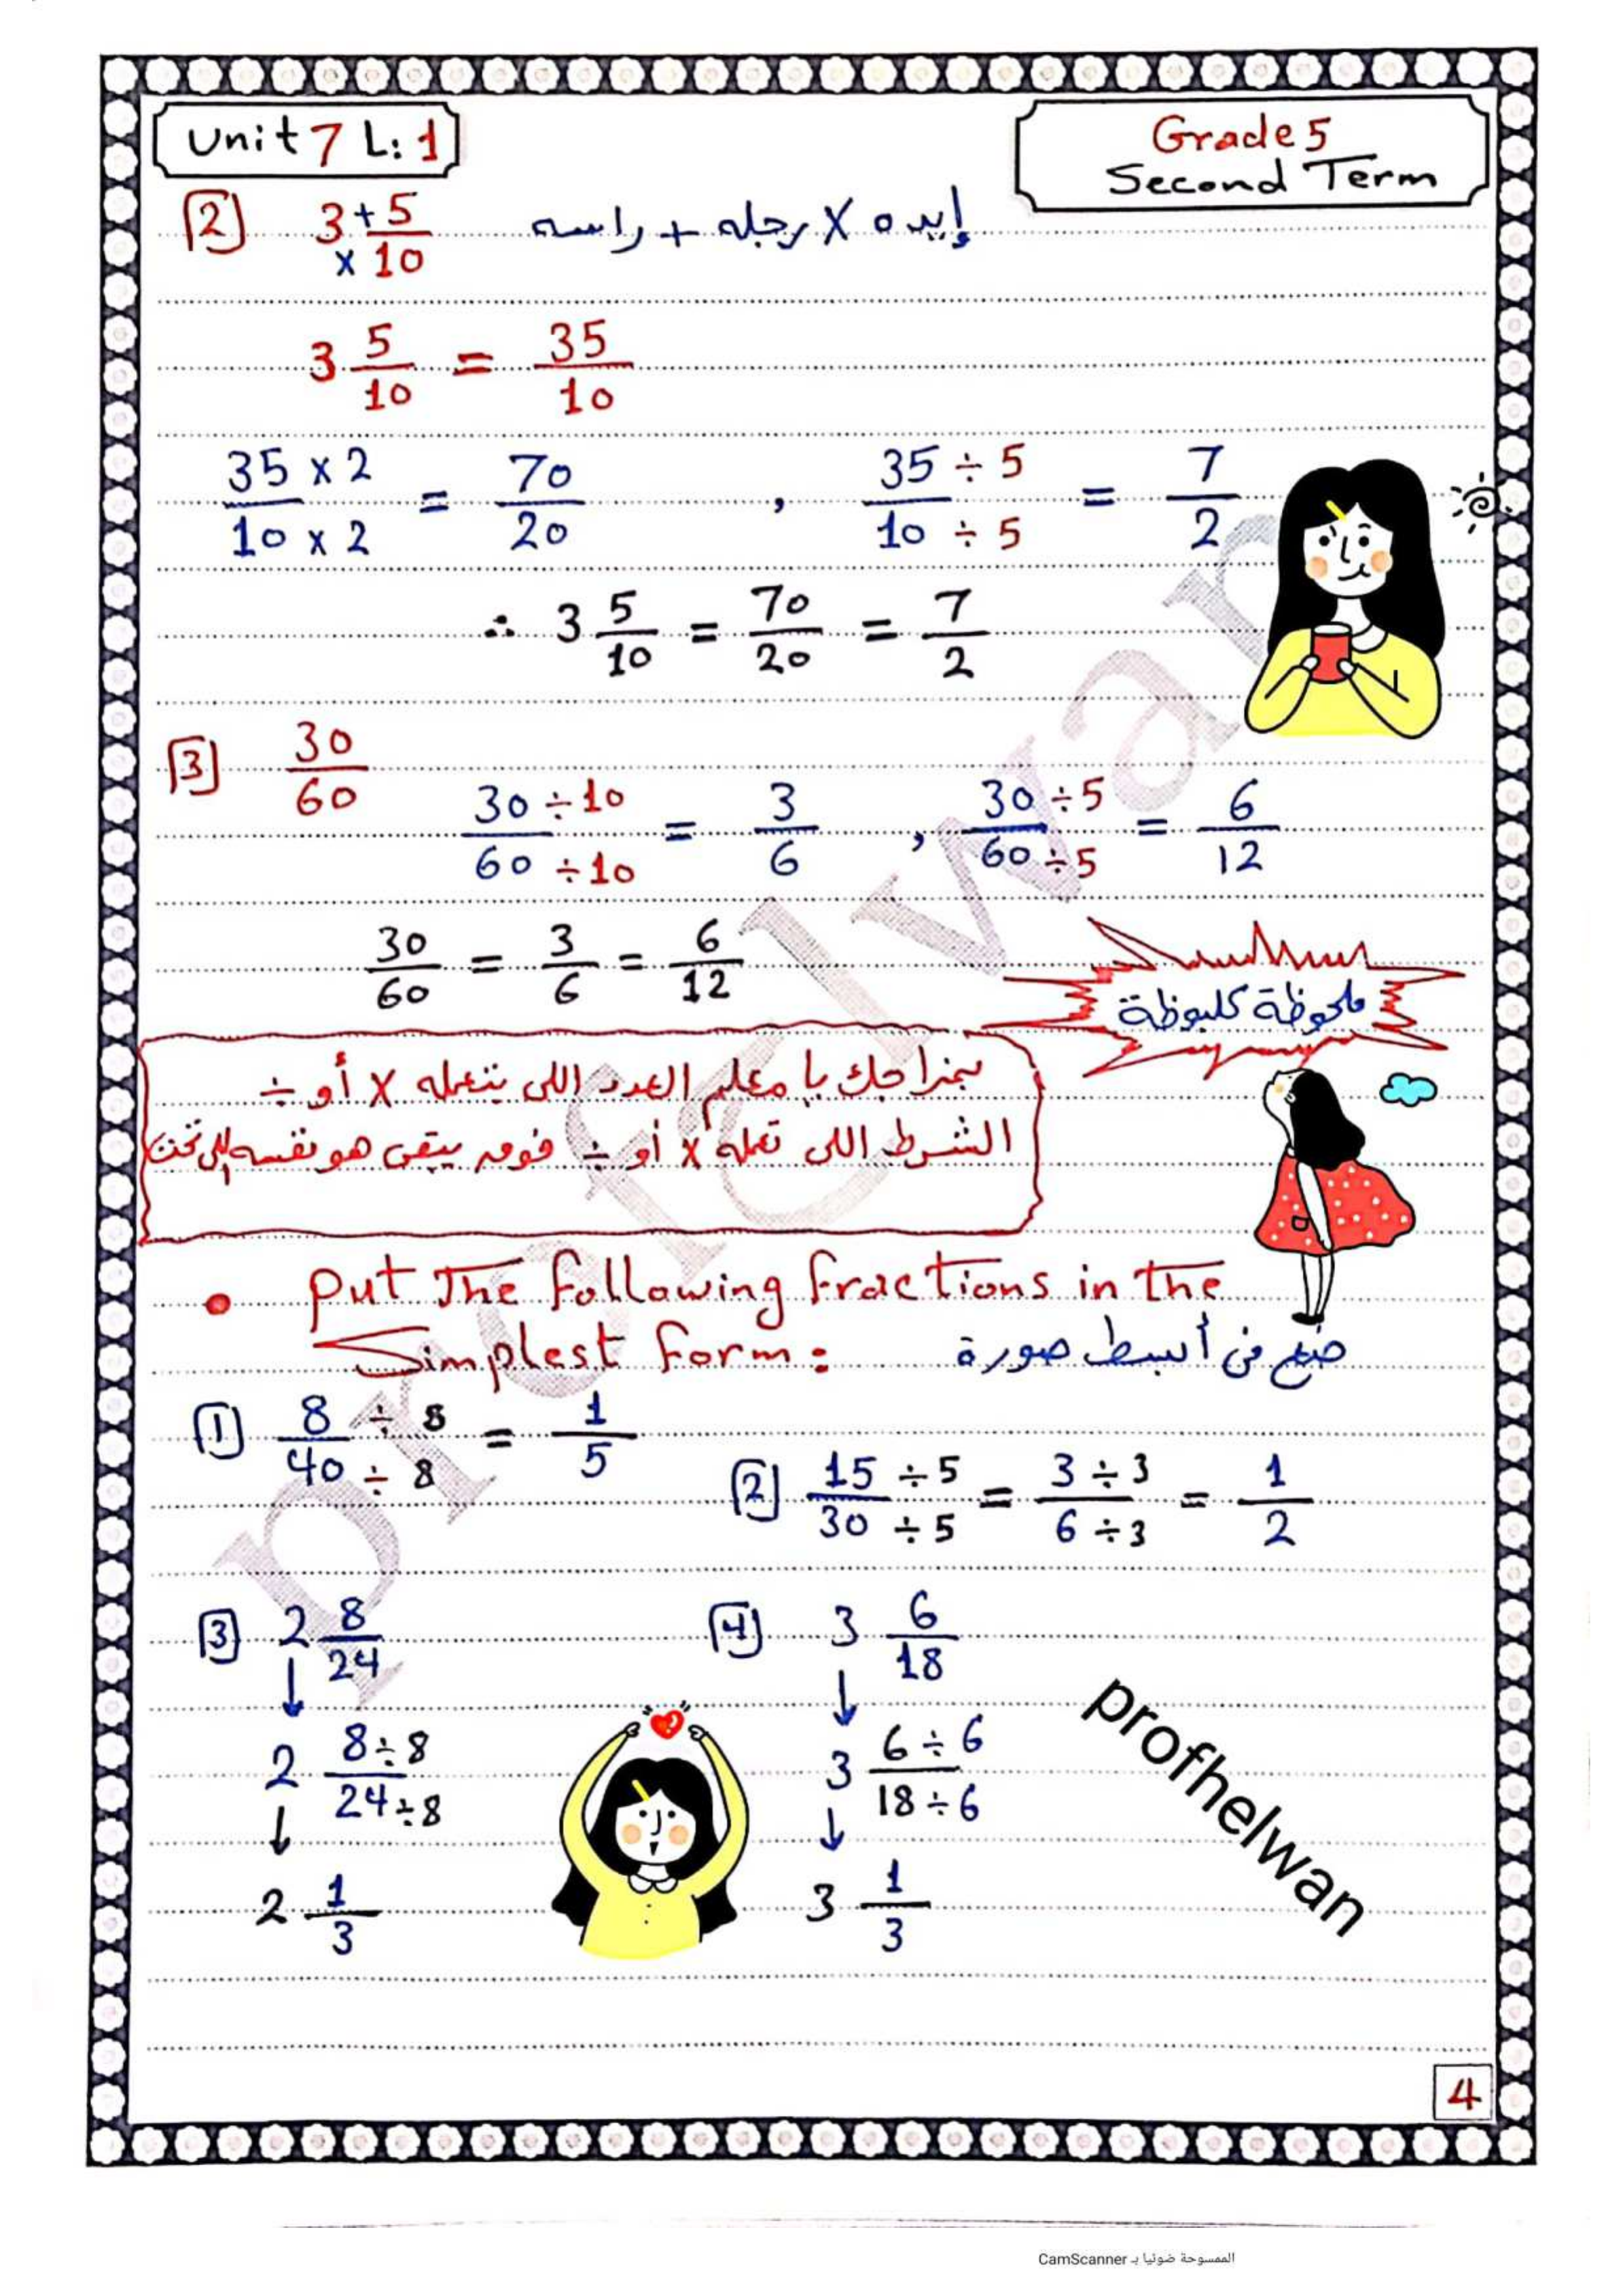 Unit 7 L: 1
Grade 5
Second Term
[2] 3 + 5/10 × إيده × رجله + راسه
3 5/10 = 35/10
35 × 2 / 10 × 2 = 70/20 , 35 ÷ 5 / 10 ÷ 5 = 7/2
∴ 3 5/10 = 70/20 = 7/2
[3] 30/60
30 ÷ 10 / 60 ÷ 10 = 3/6 , 30 ÷ 5 / 60 ÷ 5 = 6/12
30/60 = 3/6 = 6/12
ملحوظة كلبوظة
بمزاجك يا معلم العدد اللى بتعمله × أو ÷
الشرط اللى تعمله × أو ÷ فوق يبقى هو نفسه اللى تحت
• Put The following fractions in the
Simplest form: ضع فى أبسط صورة
[1] 8 ÷ 8 / 40 ÷ 8 = 1/5
[2] 15 ÷ 5 / 30 ÷ 5 = 3 ÷ 3 / 6 ÷ 3 = 1/2
[3] 2 8/24 [4] 3 6/18
↓ ↓
2 8 ÷ 8 / 24 ÷ 8 3 6 ÷ 6 / 18 ÷ 6
↓ ↓
2 1/3 3 1/3
profhelwan
profelwan
4
الممسوحة ضوئيا بـ CamScanner